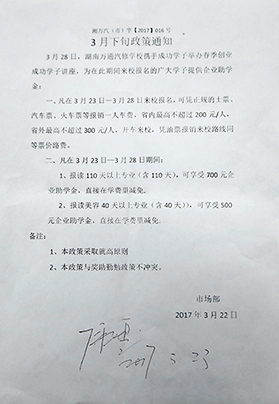 湘万汽（市）字【2017】016号
3月下旬政策通知
3月28日，湖南万通汽修学校携手成功学子举办春季创业
成功学子讲座，为在此期间来校报名的广大学子提供企业助学
金：
一、凡在3月23日—3月28日来校报名，可凭正规的士票、
汽车票、火车票等报销一人车费，省内最高不超过200元/人，
省外最高不超过300元/人，开车来校，凭油票报销来校路线同
等票价路费。
二、凡在3月23日—3月28日期间：
1、报读110天以上专业（含110天），可享受700元企
业助学金，直接在学费里减免。
2、报读美容40天以上专业（含40天），可享受500
元企业助学金，直接在学费里减免。
备注：
1、本政策采取就高原则
2、本政策与奖助勤勉政策不冲突。
市场部
2017年3月22日
2017.3.23